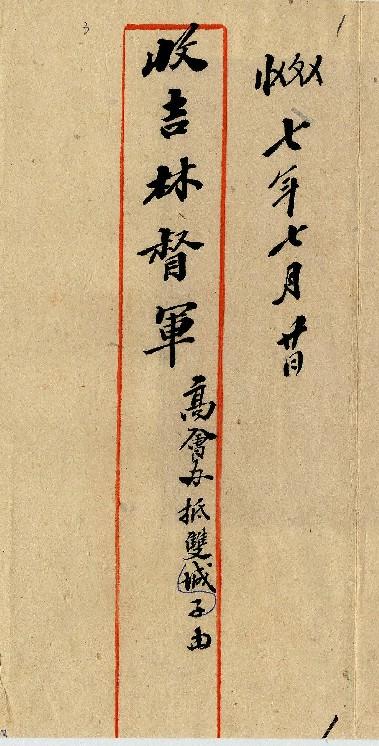 收
七年七月廿日
收吉林督軍
高會办抵雙城子由
3